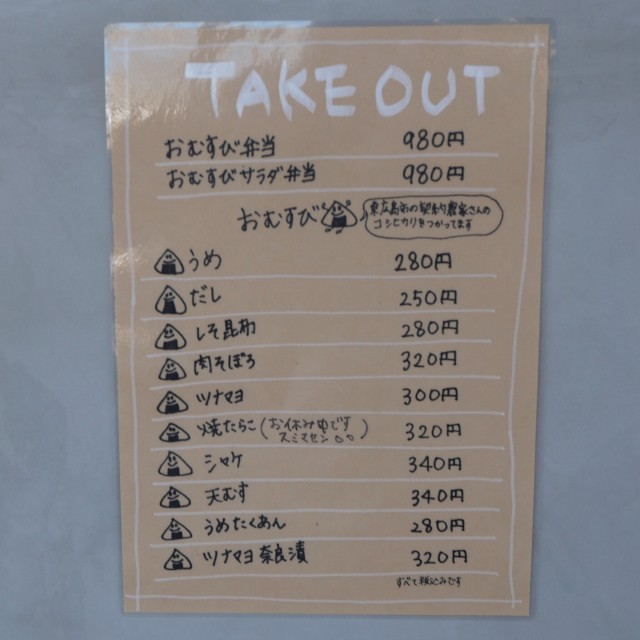 TAKE OUT
おむすび弁当 980円
おむすびサラダ弁当 980円
おむすび
東広島市の契約農家さんの
コシヒカリをつかってます
うめ 280円
だし 250円
しそ昆布 280円
肉そぼろ 320円
ツナマヨ 300円
焼たらこ(お休み中です 320円
スミマセン)
シャケ 340円
天むす 340円
うめたくあん 280円
ツナマヨ奈良漬 320円
すべて税込みです